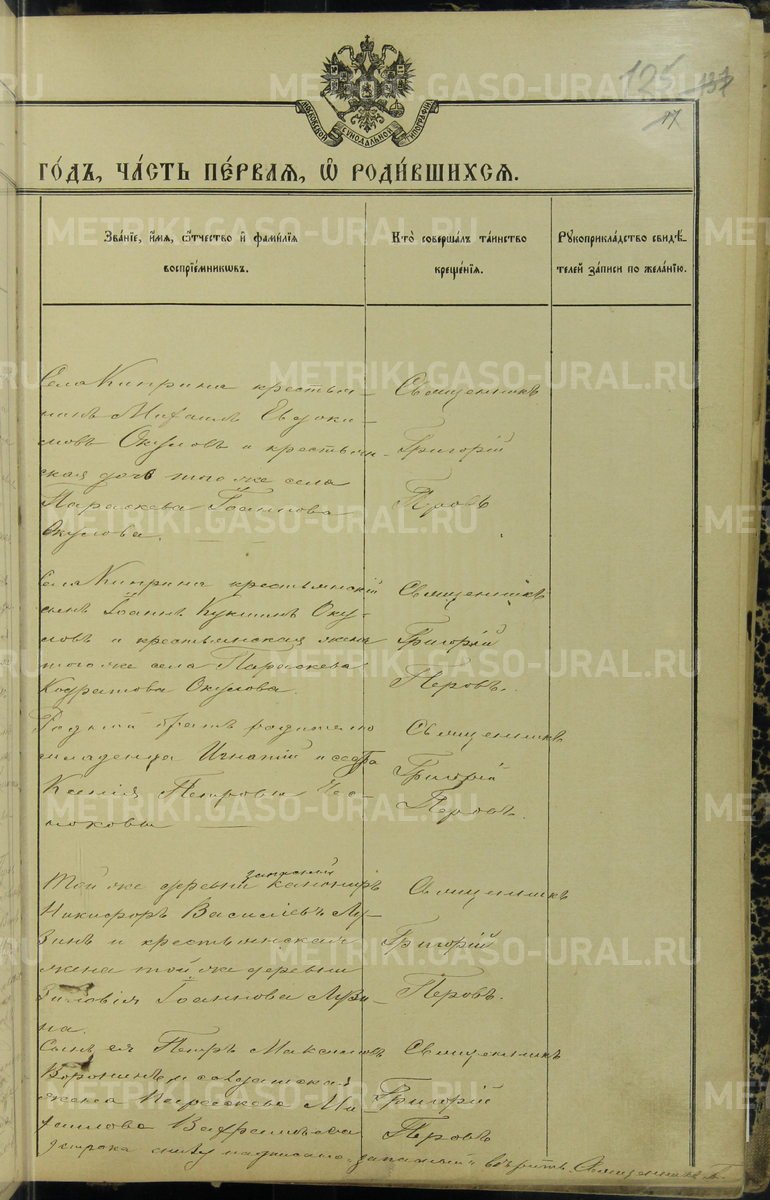 METRIKI.GASO-URAL.RU
125 137
17
МОСКОВСКОЙ СѴНОДАЛЬНОЙ ТИПОГРАФІИ
го́дъ, ча́сть пе́рваѧ, ѡ҆ роди́вшихсѧ.
Зва́нїе, и҆́мѧ, ѻ҆́тчество и҆ фами́лїѧ
воспрїе́мникѡвъ.
Кто̀ соверша́лъ та́инство
креще́нїѧ.
Рꙋкоприкла́дство свидѣ́-
телей за́писи по жела́нїю.
Села Киприна крестья-
нинъ Михаилъ Евдоки-
мовъ Окуловъ и крестьян-
ская дочь того же села
Параскева Іоаннова
Окулова.
Священникъ
Григорій
Перовъ
Села Киприна крестьянскій
сынъ Іоаннъ Оку-
ловъ и крестьянская жена
того же села Параскева
Кодратова Окулова.
Священникъ
Григорій
Перовъ.
Родный братъ родителю
младенца Игнатій и сестра
Ксенія Петровы
Священникъ
Григорій
Перовъ.
Той же деревни запасный канониръ
Никифоръ Василіевъ Лу-
зинъ и крестьянская
жена той же деревни
Зиновія Іоаннова Лузи-
на.
Священникъ
Григорій
Перовъ.
Сынъ ея Петръ Максимовъ
Воронинъ и солдатская
жена Параскева Ми-
хаилова
Священникъ
Григорій
Перовъ
строка снизу надписано „запасный“ вѣрить. Священникъ Г.